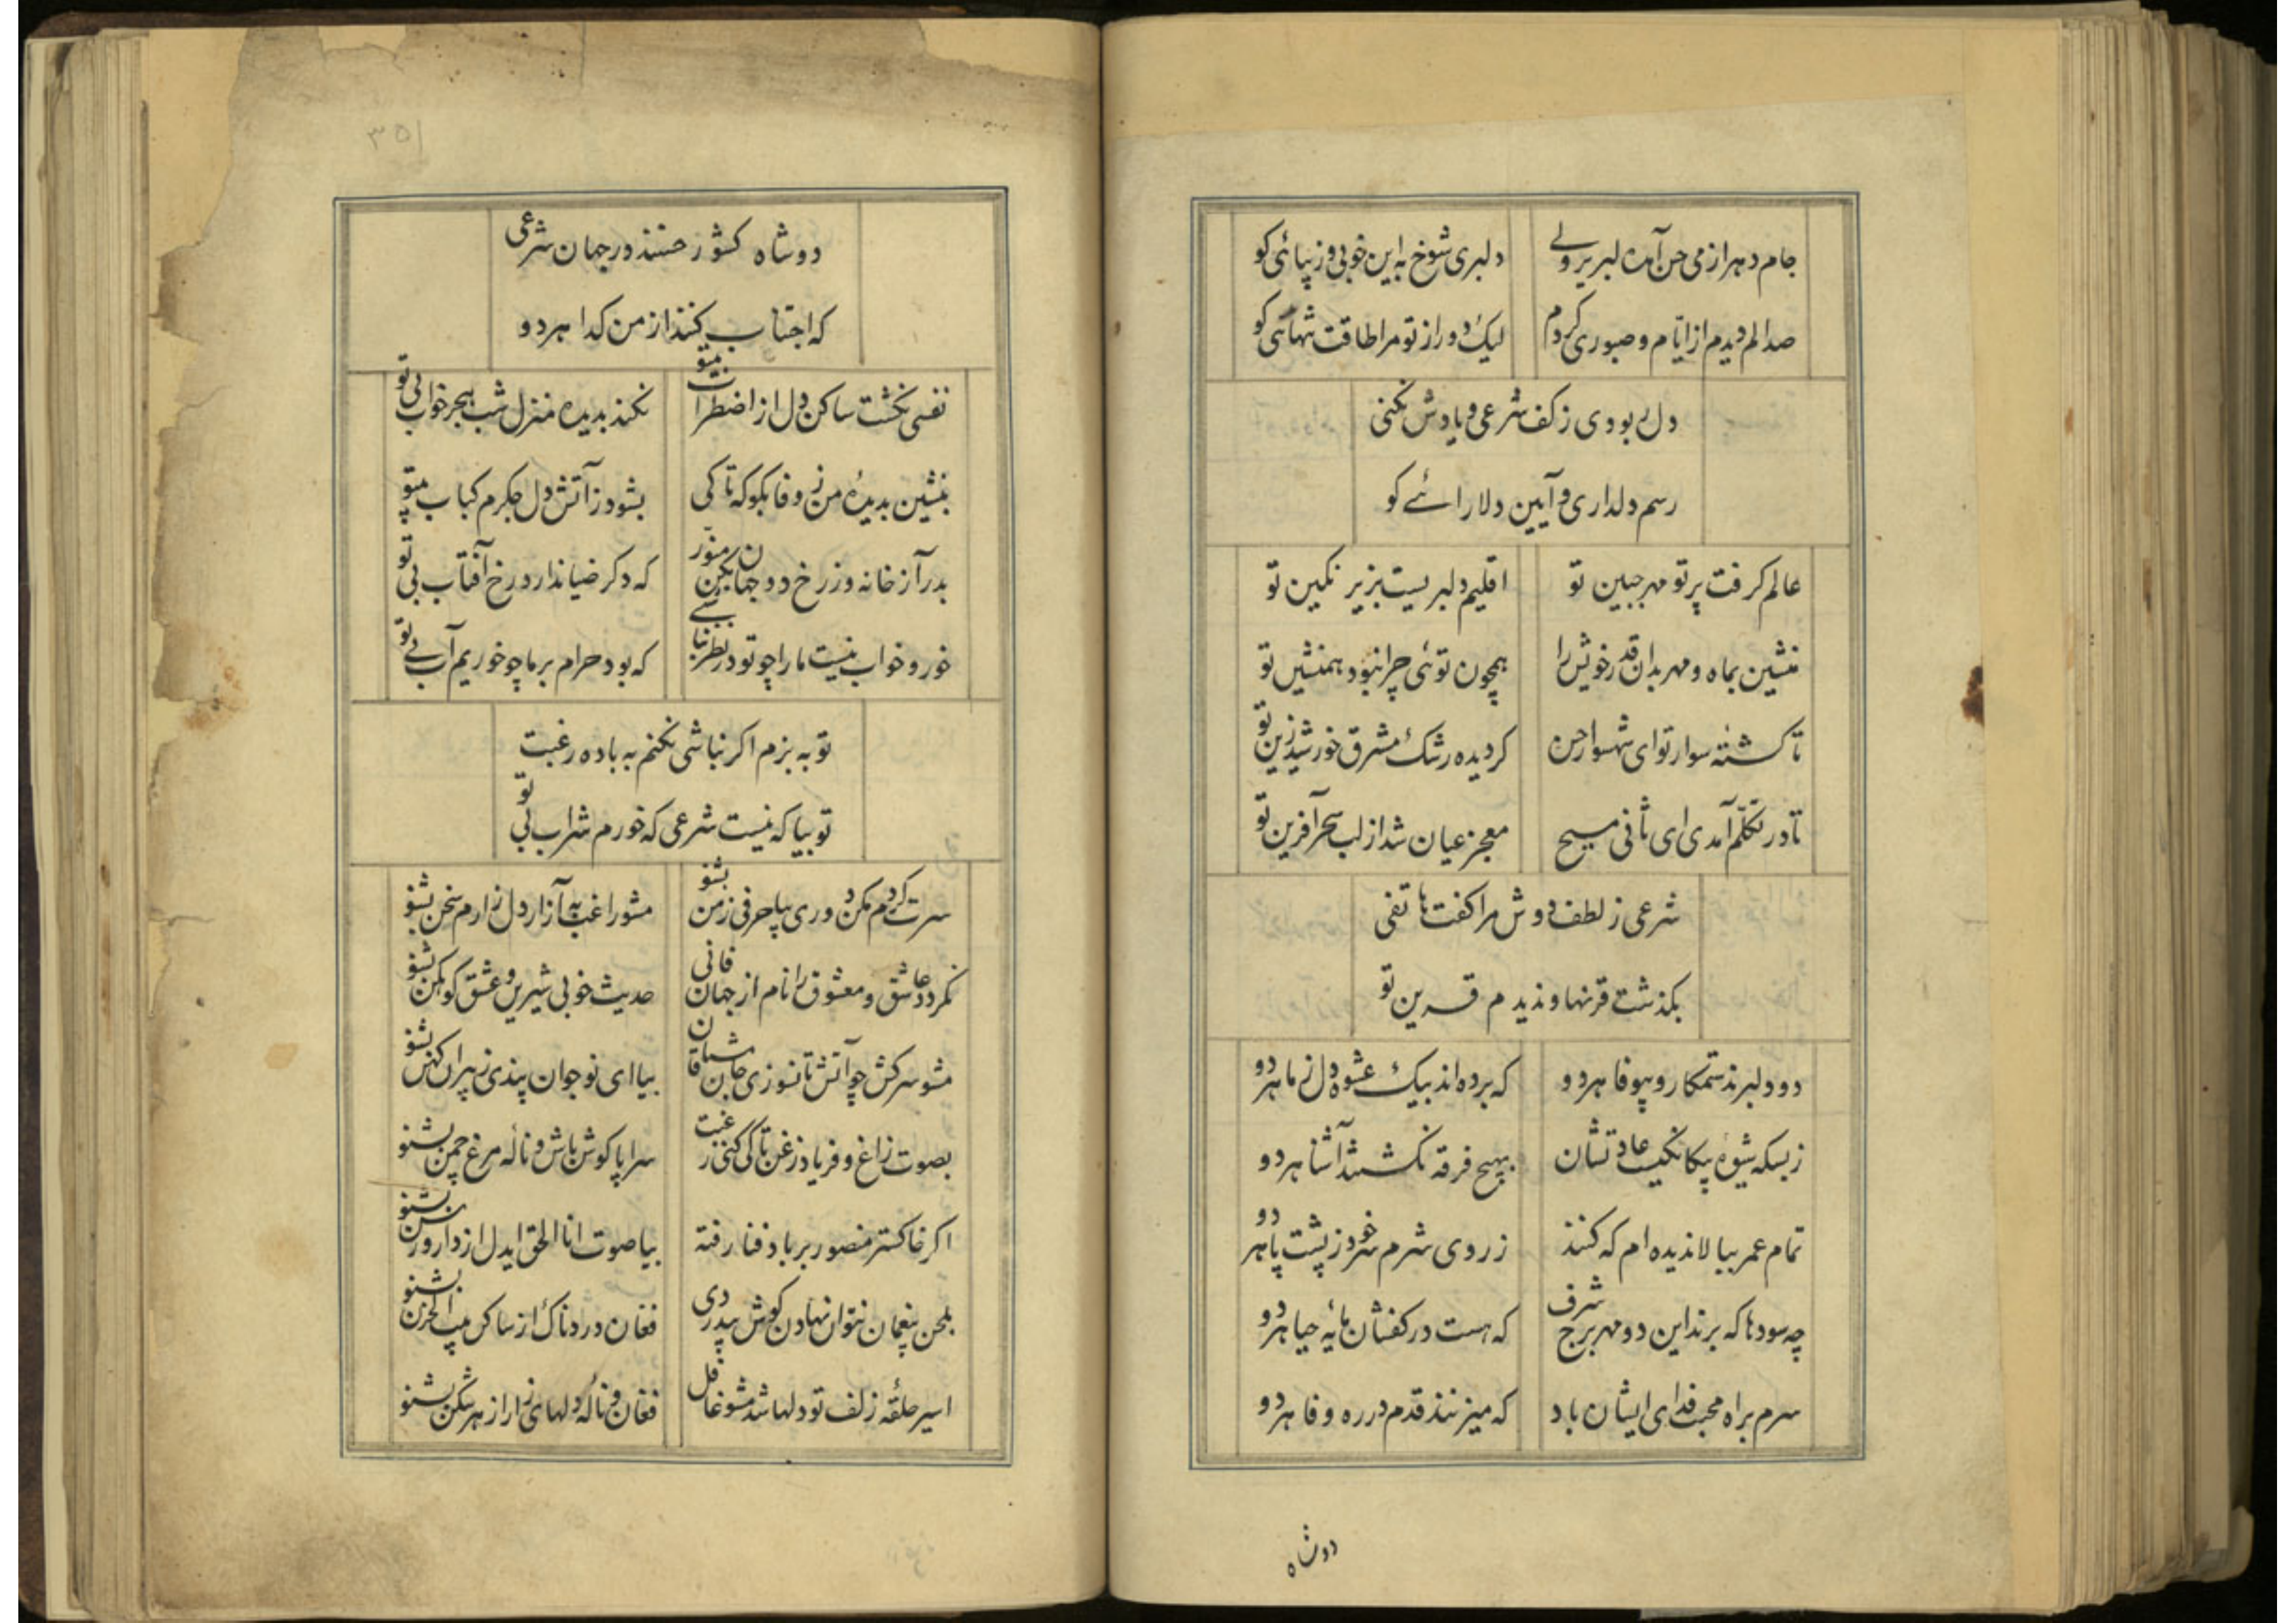 جام دهر از می حسن آمده لبریز ولی
دلبری شوخ به این خوبی و زیبائی کو
صد الم دیدم از ایام و صبوری کردم
لیک دور از تو مرا طاقت تنهائی کو
دل ربودی ز کف شرعی و یادش نکنی
رسم دلداری و آیین دلارائے کو
عالم کرفت پرتو مهر جبین تو
اقلیم دلبریست بزیر نکین تو
منشین بماه و مهر بدان قدر خویش را
همچون توئی چرا نبود همنشین تو
تا کشته سوار تو ای شهسوار حسن
کردیده رشک مشرق خورشید زین تو
تا در تکلّم آمدی ای ثانی مسیح
معجز عیان شد از لب سحرآفرین تو
شرعی ز لطف دوش مرا کفت هاتفی
بکذشت قرنها و ندیدم قرین تو
دو دلبرند ستمکار و بیوفا هر دو
که برده اند بیک عشوه دل ز ما هر دو
ز بسکه شیوهٔ بیکانکیست عادتشان
بهیچ فرقه نکشتند آشنا هر دو
تمام عمر ببالا ندیده ام که کنند
ز روی شرم سر خود ز پشت پا هر دو
چه سودها که برند این دو مهر برج شرف
که هست در کفشان مایهٔ حیا هر دو
سرم براه محبت فدای ایشان باد
که میزنند قدم در ره وفا هر دو
دو شاه
۳۵۱
دو شاه کشور حسنند در جهان شرعی
که اجتناب کنند از من کدا هر دو
نفسی نکشت ساکن دل از اضطراب بیتو
نکند بدیده منزل شب هجر خواب بی تو
بنشین بدیدهٔ من ز وفا بکو که تا کی
بشود ز آتش دل جکرم کباب بیتو
بدرآ ز خانه وز رخ دو جهان بکن منوّر
که دکر ضیا ندارد رخ آفتاب بی تو
خور و خواب نیست ما را چو تو در نظر نباشے
که بود حرام بر ما چو خوریم آب بے تو
تو به بزم اکر نباشی نکنم به باده رغبت
تو بیا که نیست شرعی که خورم شراب بی تو
سرت کردم مکن دوری بیا حرفی ز من بشنو
مشو راغب به آزار دل زارم سخن بشنو
نکردد عاشق و معشوق را نام از جهان فانی
حدیث خوبی شیرین و عشق کوهکن بشنو
مشو سرکش چو آتش تا نسوزی جان مشتاقان
بیا ای نوجوان پندی ز پیران کهن بشنو
بصوت زاغ و فریاد زغن تا کی کنی رغبت
سراپا کوش باش و نالهٔ مرغ چمن بشنو
اکر خاکستر منصور بر باد فنا رفته
بیا صوت انا الحق ایدل از دار و رسن بشنو
بلحن پنعمان نتوان نهادن کوش بیدردی
فغان دردناک از ساکن بیت الحزن بشنو
اسیر حلقهٔ زلف تو دلها شد مشو غافل
فغان و نالهٔ دلهای زار از هر شکن بشنو